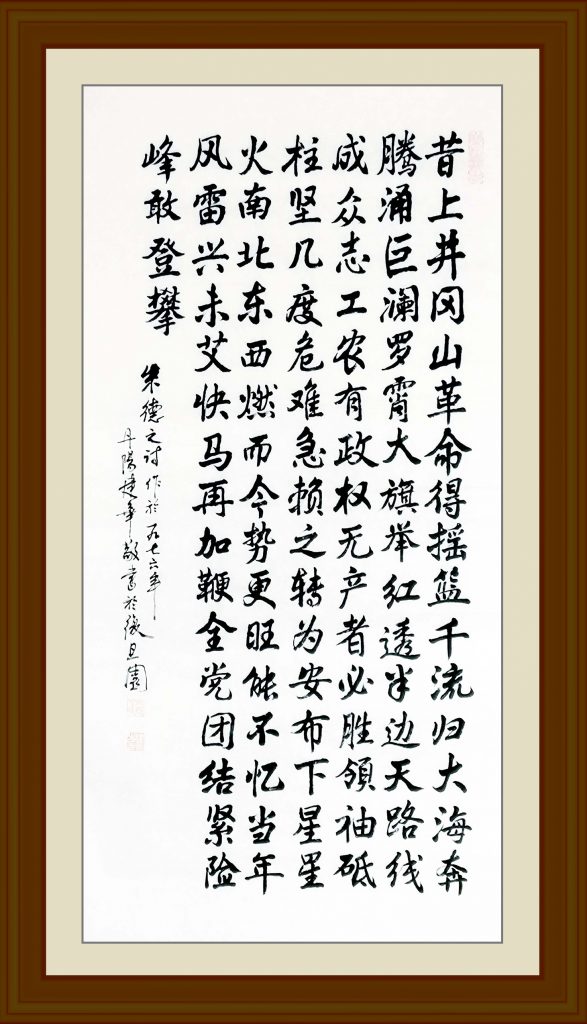 昔上井冈山革命得摇篮千流归大海奔
腾涌巨澜罗霄大旗举红透半边天路线
成众志工农有政权无产者必胜領袖砥
柱坚几度危难急赖之转为安布下星星
火南北东西燃而今势更旺能不忆当年
风雷兴未艾快马再加鞭全党团结紧险
峰敢登攀
朱德之诗作於一九七六年
丹陽敬書於復旦園